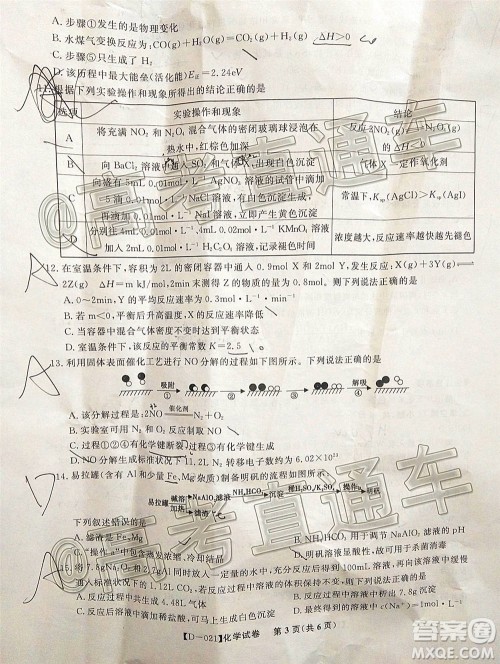 A. 步骤①发生的是物理变化
B. 水煤气变换反应为:CO(g)+H₂O(g)═CO₂(g)+H₂(g) ΔH>0
C. 步骤⑤只生成了H₂
D. 该历程中最大能垒(活化能)E正=2.24eV
11. 根据下列实验操作和现象所得出的结论正确的是
选项 实验操作和现象 结论
A 将充满 NO₂ 和 N₂O₄ 混合气体的密闭玻璃球浸泡在热水中,红棕色加深 反应2NO₂(g)⇌N₂O₄(g)的ΔH<0
B 向 BaCl₂ 溶液中通入 SO₂ 和气体X,出现白色沉淀 气体X一定作氧化剂
C 向盛有 5mL 0.01mol·L⁻¹ AgNO₃ 溶液的试管中滴加5滴 0.01mol·L⁻¹ NaCl 溶液,产生白色沉淀,再滴加 0.01mol·L⁻¹ NaI 溶液,立即产生黄色沉淀 常温下,Ksp(AgCl)>Ksp(AgI)
D 分别往 4mL 0.01mol·L⁻¹、4mL 0.02mol·L⁻¹ KMnO₄ 溶液加入 2mL 0.01mol·L⁻¹ H₂C₂O₄ 溶液,记录褪色时间 浓度越大,反应速率越快越先褪色
12. 在室温条件下,容积为 2L 的密闭容器中通入 0.9mol X 和 2mol Y,发生反应:X(g)+3Y(g)⇌
2Z(g) ΔH=m kJ/mol,2min末测定Z的物质的量为0.8mol。则下列说法正确的是
A. 0~2min,Y 的平均反应速率为 0.3mol·L⁻¹·min⁻¹
B. 若 m<0,平衡后升高温度,平衡逆向移动
C. 当容器中混合气体密度不变时达到平衡状态
D. 室温条件下,此反应平衡常数 K=2.5
13. 利用固体表面催化工艺进行 NO 分解的过程如图所示。下列说法正确的是
吸附 ① ② ③ 解吸 ④
A. 该分解过程是:2NO 催化剂 N₂+O₂
B. 实验室可用 NO 与水反应制取 NO
C. 过程①②④有化学键断裂,过程③有化学键生成
D. NO 分解生成标准状况下 11.2L N₂ 转移电子数约为 6.02×10²³
14. 易拉罐(含有 Al 和少量 Fe、Mg 杂质)制备明矾的流程如图所示。
易拉罐 碱溶 加热 NaAlO₂溶液 滤渣 NH₄HCO₃ 沉淀 稀H₂SO₄/K₂SO₄ 操作a 明矾
下列叙述错误的是
A. 滤渣是 Fe、Mg
B. NH₄HCO₃ 用于调节 NaAlO₂ 溶液的 pH
C. “操作a”中包含蒸发浓缩、冷却结晶
D. 明矾溶液显酸性,故不能用于杀菌消毒
15. 将 7.8g Na₂O₂ 和 2.7g Al 放入一定量的水中,充分反应后得到 200mL 溶液,再向该溶液中缓慢
通入标准状况下的 1.12L CO₂,若反应过程中溶液的体积不变,则下列叙述正确的是
A. 反应过程中共生成 4.48L 气体
C. 反应过程中通入 CO₂ 后马上出现白色沉淀
【D-021】化学试卷 第 3 页(共 6 页)
@高考直通车